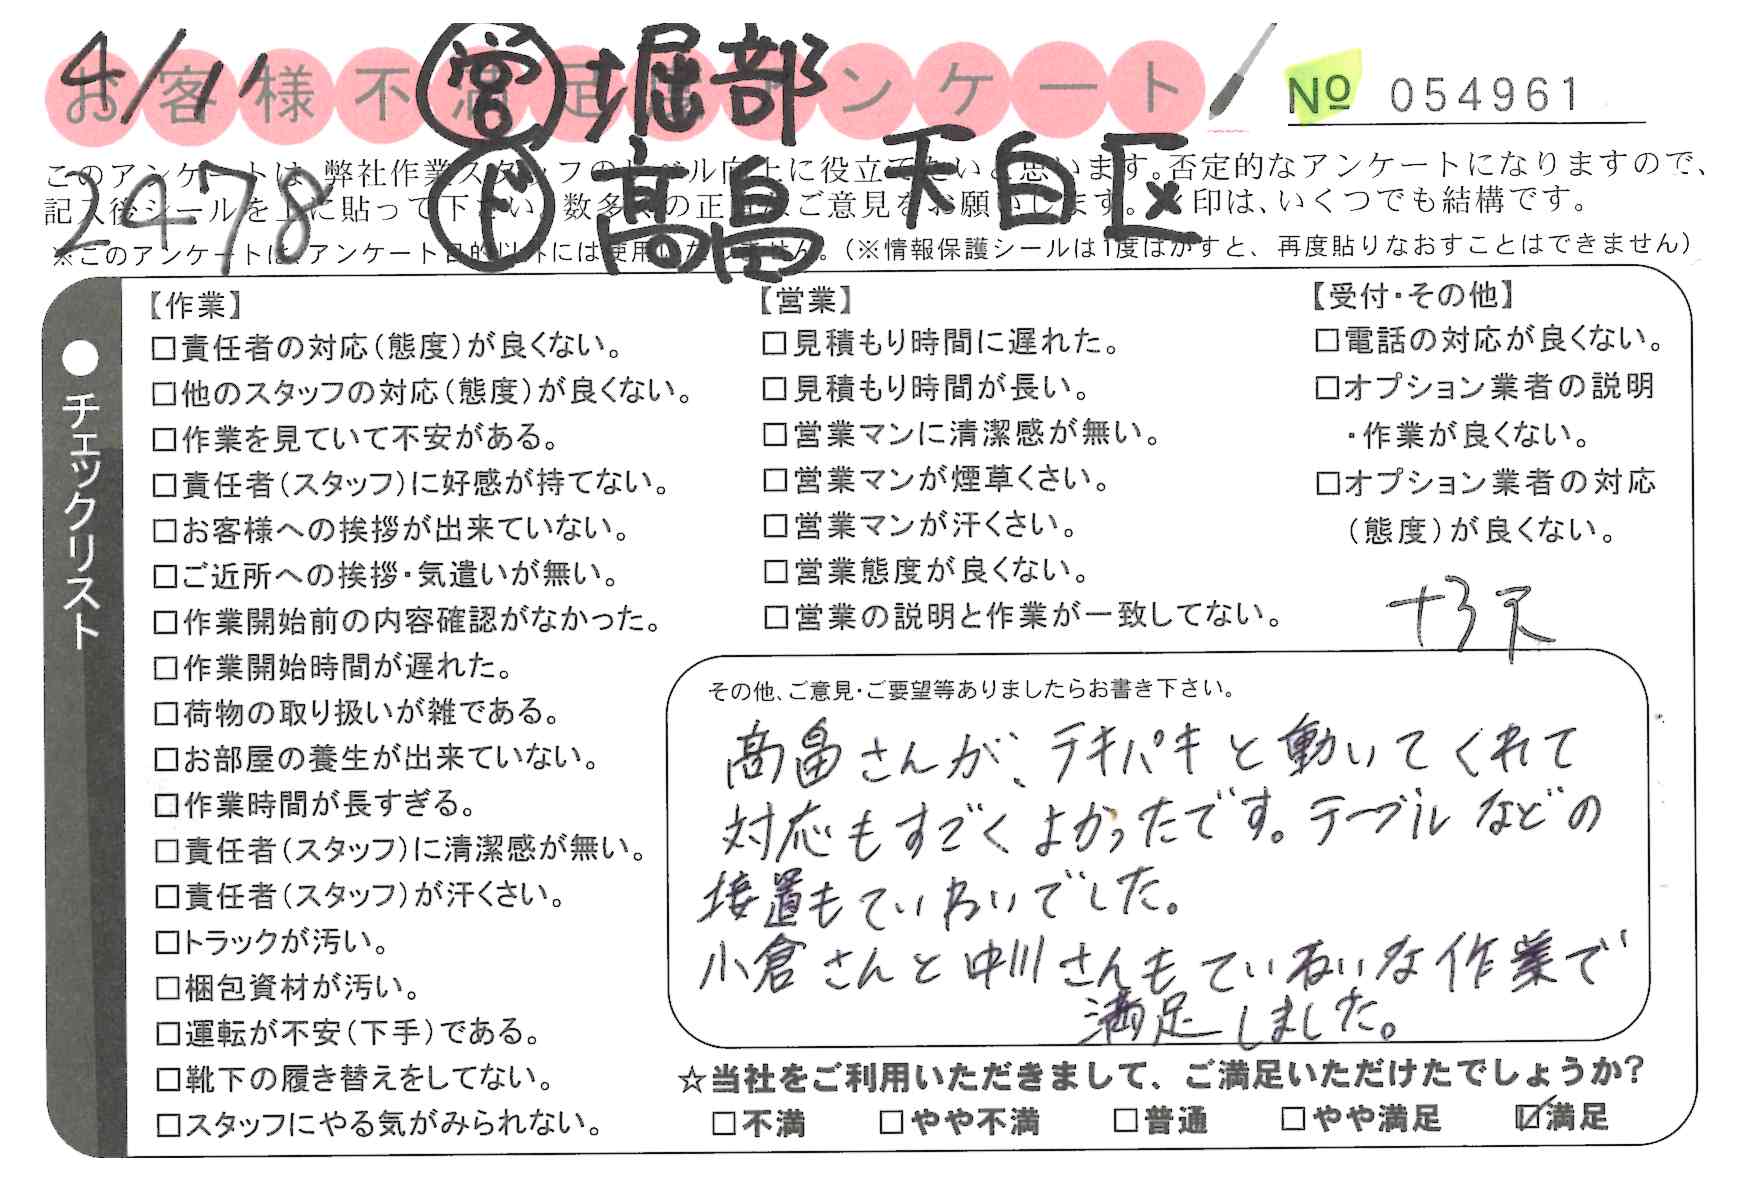 4/11 ㊂営 堀部
お客様不満足度アンケート
No 054961
2478 ド 髙畠 天白区
このアンケートは、弊社作業スタッフのレベル向上に役立てたいと思います。否定的なアンケートになりますので、
記入後シールを上に貼って下さい。数多くの正直なご意見をお願いします。レ印は、いくつでも結構です。
※このアンケートは、アンケート目的以外には使用いたしません。（※情報保護シールは1度はがすと、再度貼りなおすことはできません）
●チェックリスト
【作業】
□責任者の対応（態度）が良くない。
□他のスタッフの対応（態度）が良くない。
□作業を見ていて不安がある。
□責任者（スタッフ）に好感が持てない。
□お客様への挨拶が出来ていない。
□ご近所への挨拶・気遣いが無い。
□作業開始前の内容確認がなかった。
□作業開始時間が遅れた。
□荷物の取り扱いが雑である。
□お部屋の養生が出来ていない。
□作業時間が長すぎる。
□責任者（スタッフ）に清潔感が無い。
□責任者（スタッフ）が汗くさい。
□トラックが汚い。
□梱包資材が汚い。
□運転が不安（下手）である。
□靴下の履き替えをしてない。
□スタッフにやる気がみられない。
【営業】
□見積もり時間に遅れた。
□見積もり時間が長い。
□営業マンに清潔感が無い。
□営業マンが煙草くさい。
□営業マンが汗くさい。
□営業態度が良くない。
□営業の説明と作業が一致してない。
【受付・その他】
□電話の対応が良くない。
□オプション業者の説明
・作業が良くない。
□オプション業者の対応
（態度）が良くない。
その他、ご意見・ご要望等ありましたらお書き下さい。
髙畠さんが、テキパキと動いてくれて
対応もすごくよかったです。テーブルなどの
接置もていねいでした。
小倉さんと中川さんもていねいな作業で
満足しました。
☆当社をご利用いただきまして、ご満足いただけたでしょうか？
□不満 □やや不満 □普通 □やや満足 ☑満足